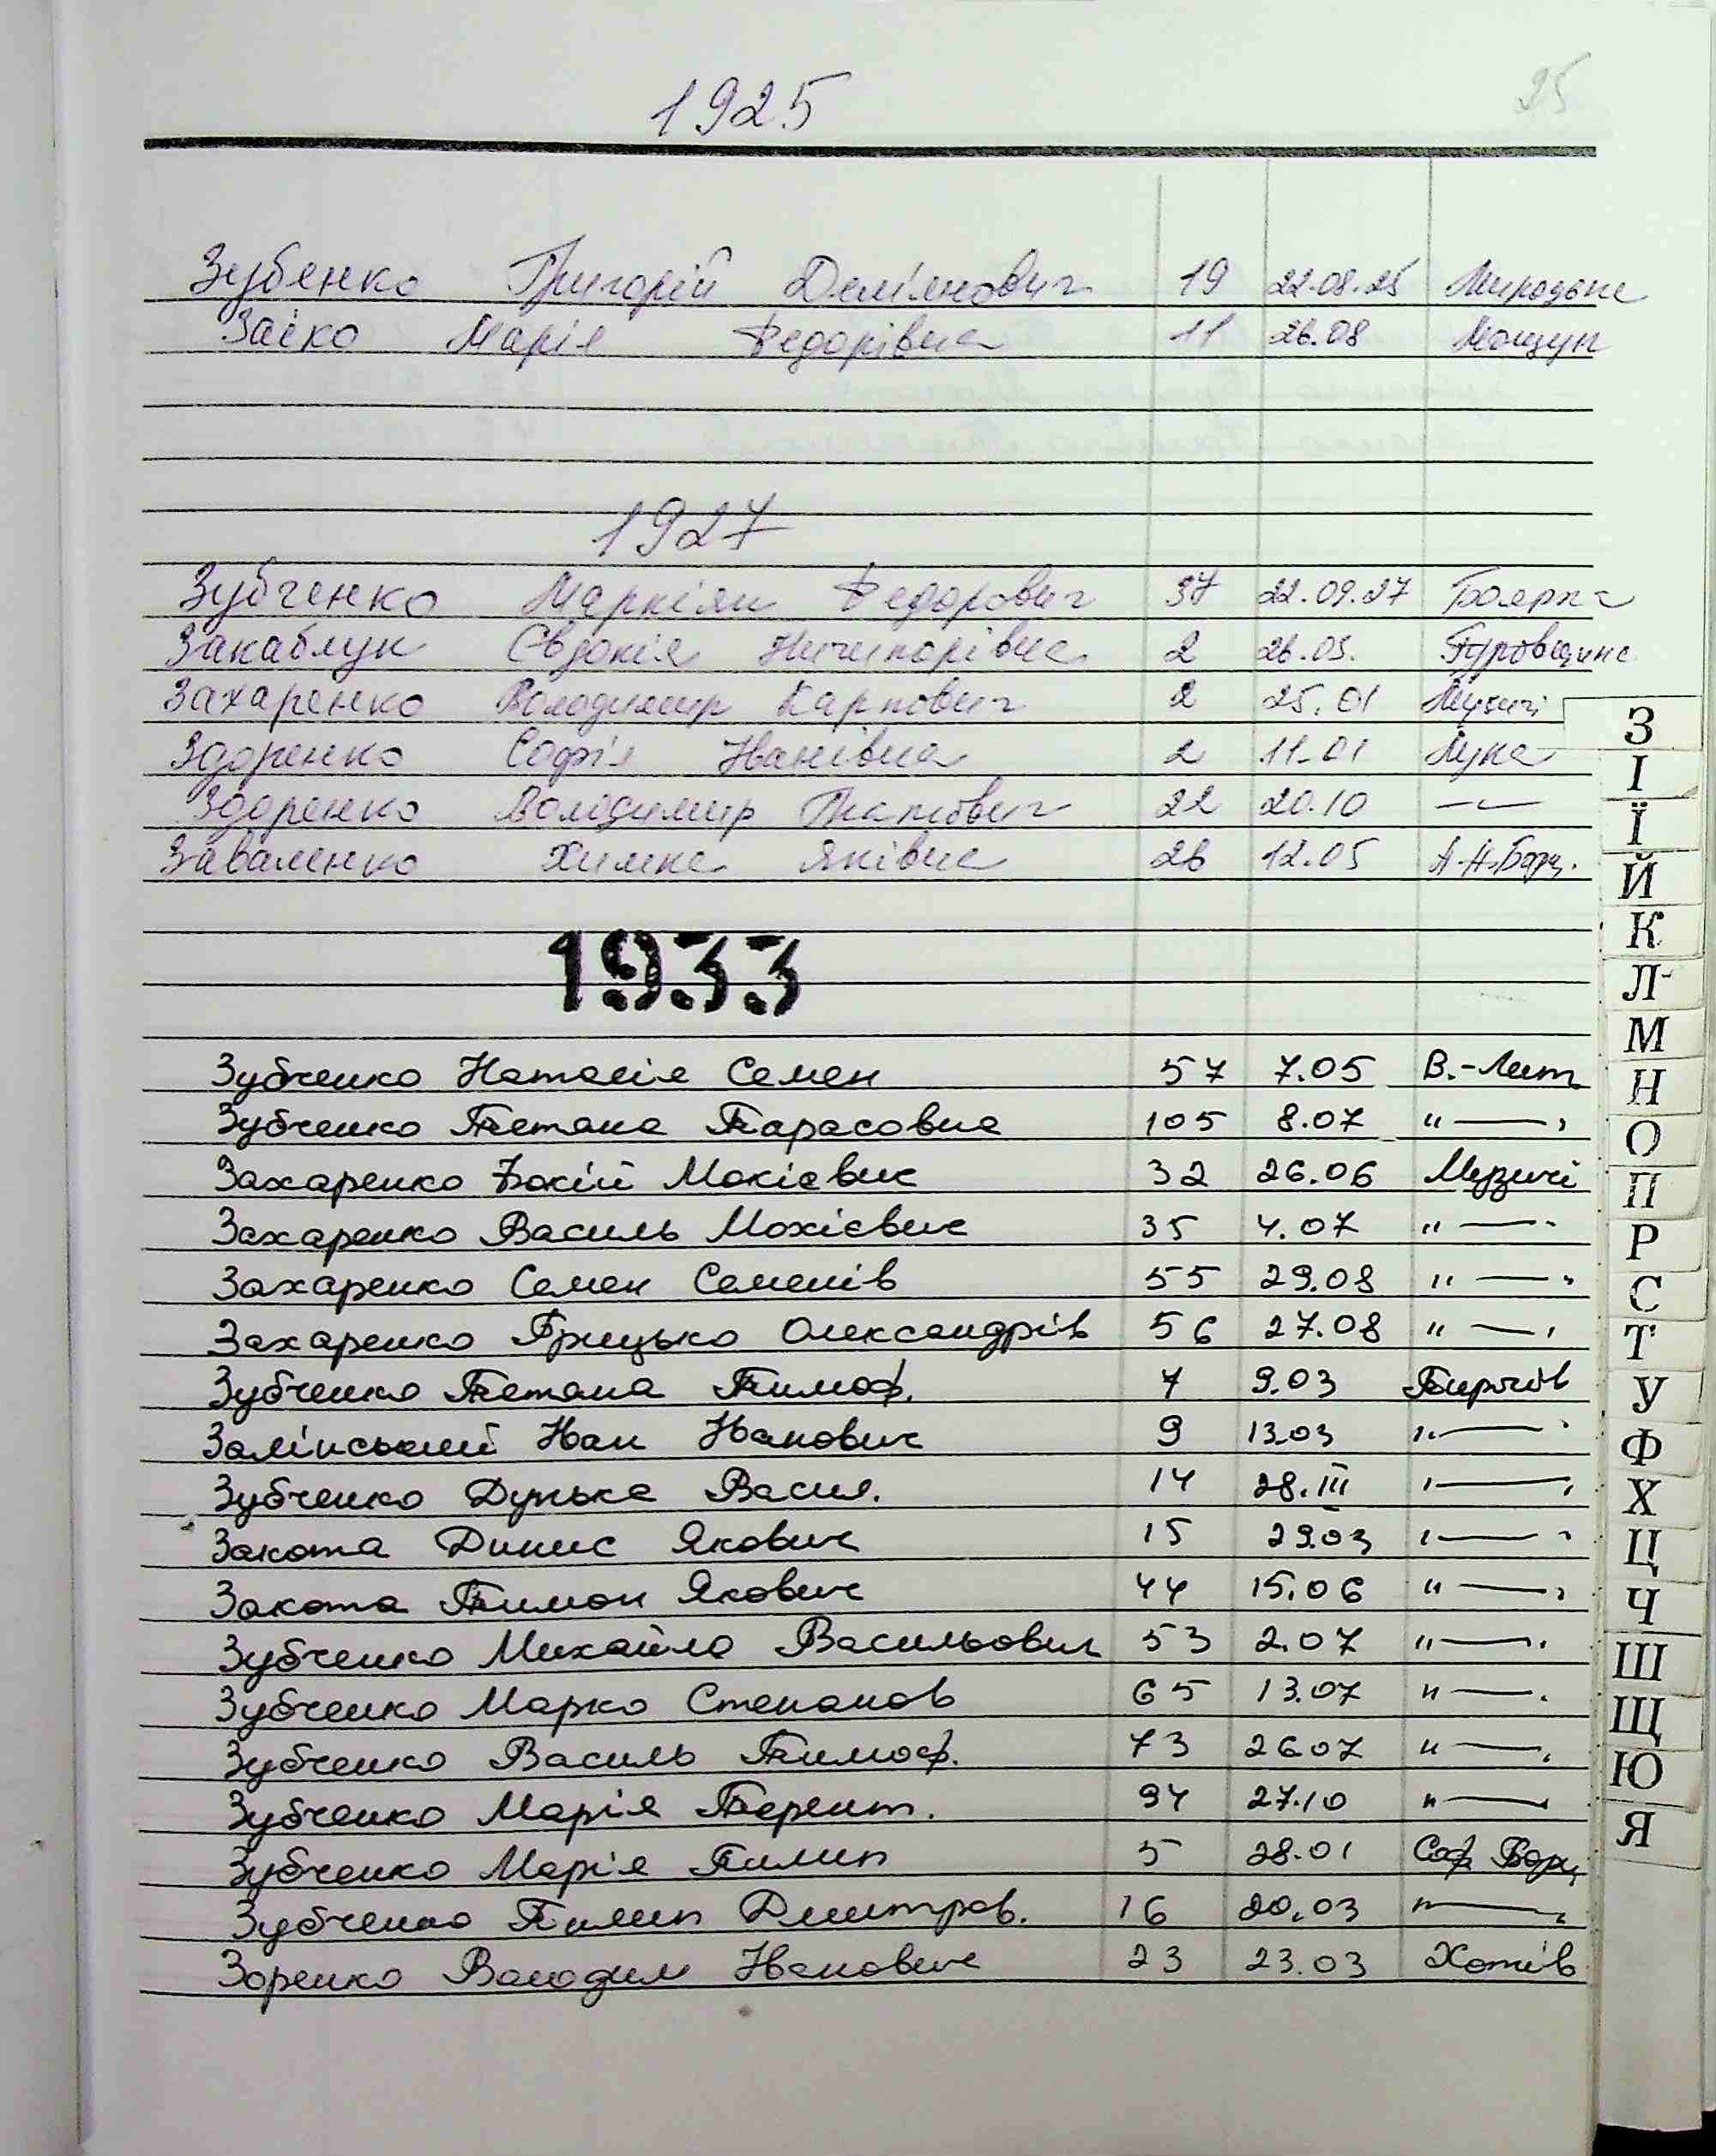 25
1925
Зубенко Григорій Дем'янович 19 22.08.25
Заєко Марія Федорівна 11 26.08 Мощун
1927
Зубченко Маркіян Федорович 37 22.09.27 Боярка
Закаблук Євдокія Ничипорівна 2 26.03. Гуровщина
Захаренко Володимир Карпович 2 25.01 Музичі
Здоренко Софія Іванівна 2 11.01 Лука
Здоренко Володимир 22 20.10 -"-
Заваленко Химка Яківна 26 12.05 Борщ.
1933
Зубченко Наталія Семен 57 7.05 В.-Лит.
Зубченко Тетяна Тарасовна 105 8.07 "—"
Захаренко Мокієвич 32 26.06 Музичі
Захаренко Василь Мокієвич 35 4.07 "—"
Захаренко Семен Семенів 55 29.08 "—"
Захаренко Грицько Олександрів 56 27.08 "—"
Зубченко Тетяна Тимоф. 7 9.03
Залінський Іван Іванович 9 13.03 "—"
Зубченко Дунька Васил. 14 28.III "—"
Закота Динис Якович 15 29.03 "—"
Закота Тимон Якович 44 15.06 "—"
Зубченко Михайло Васильович 53 2.07 "—"
Зубченко Марко Степанов 65 13.07 "—"
Зубченко Василь Тимоф. 73 26.07 "—"
Зубченко Марія Терент. 94 27.10 "—"
Зубченко Марія Пилип 5 28.01 Соф Борщ
Зубченко Пилип Дмитров. 16 20.03 "—"
Зоренко Володим Іванович 23 23.03 Хотів
З
І
Ї
Й
К
Л
М
Н
О
П
Р
С
Т
У
Ф
Х
Ц
Ч
Ш
Щ
Ю
Я